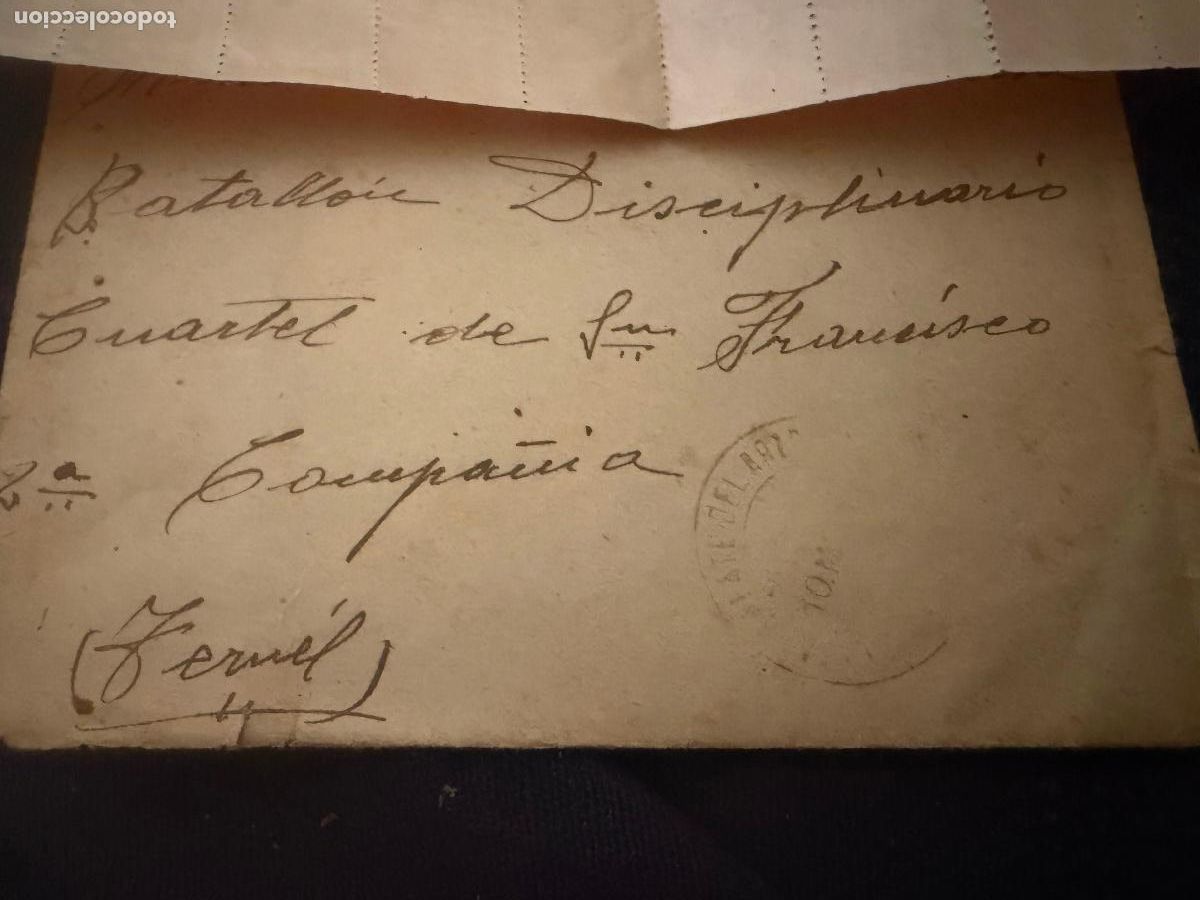 todocoleccion
Batallón Disciplinario
Cuartel de Sn Francisco
2ª Compañia
(Teruél)
10.M